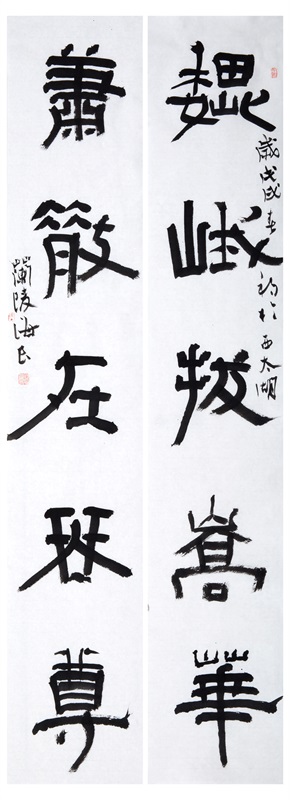 魏峨拔嵩華
歲戊戌春初於西太湖
蕭散在琴尊
蘭陵海民